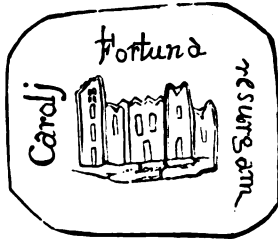 Caralj
Fortuna
resurgam